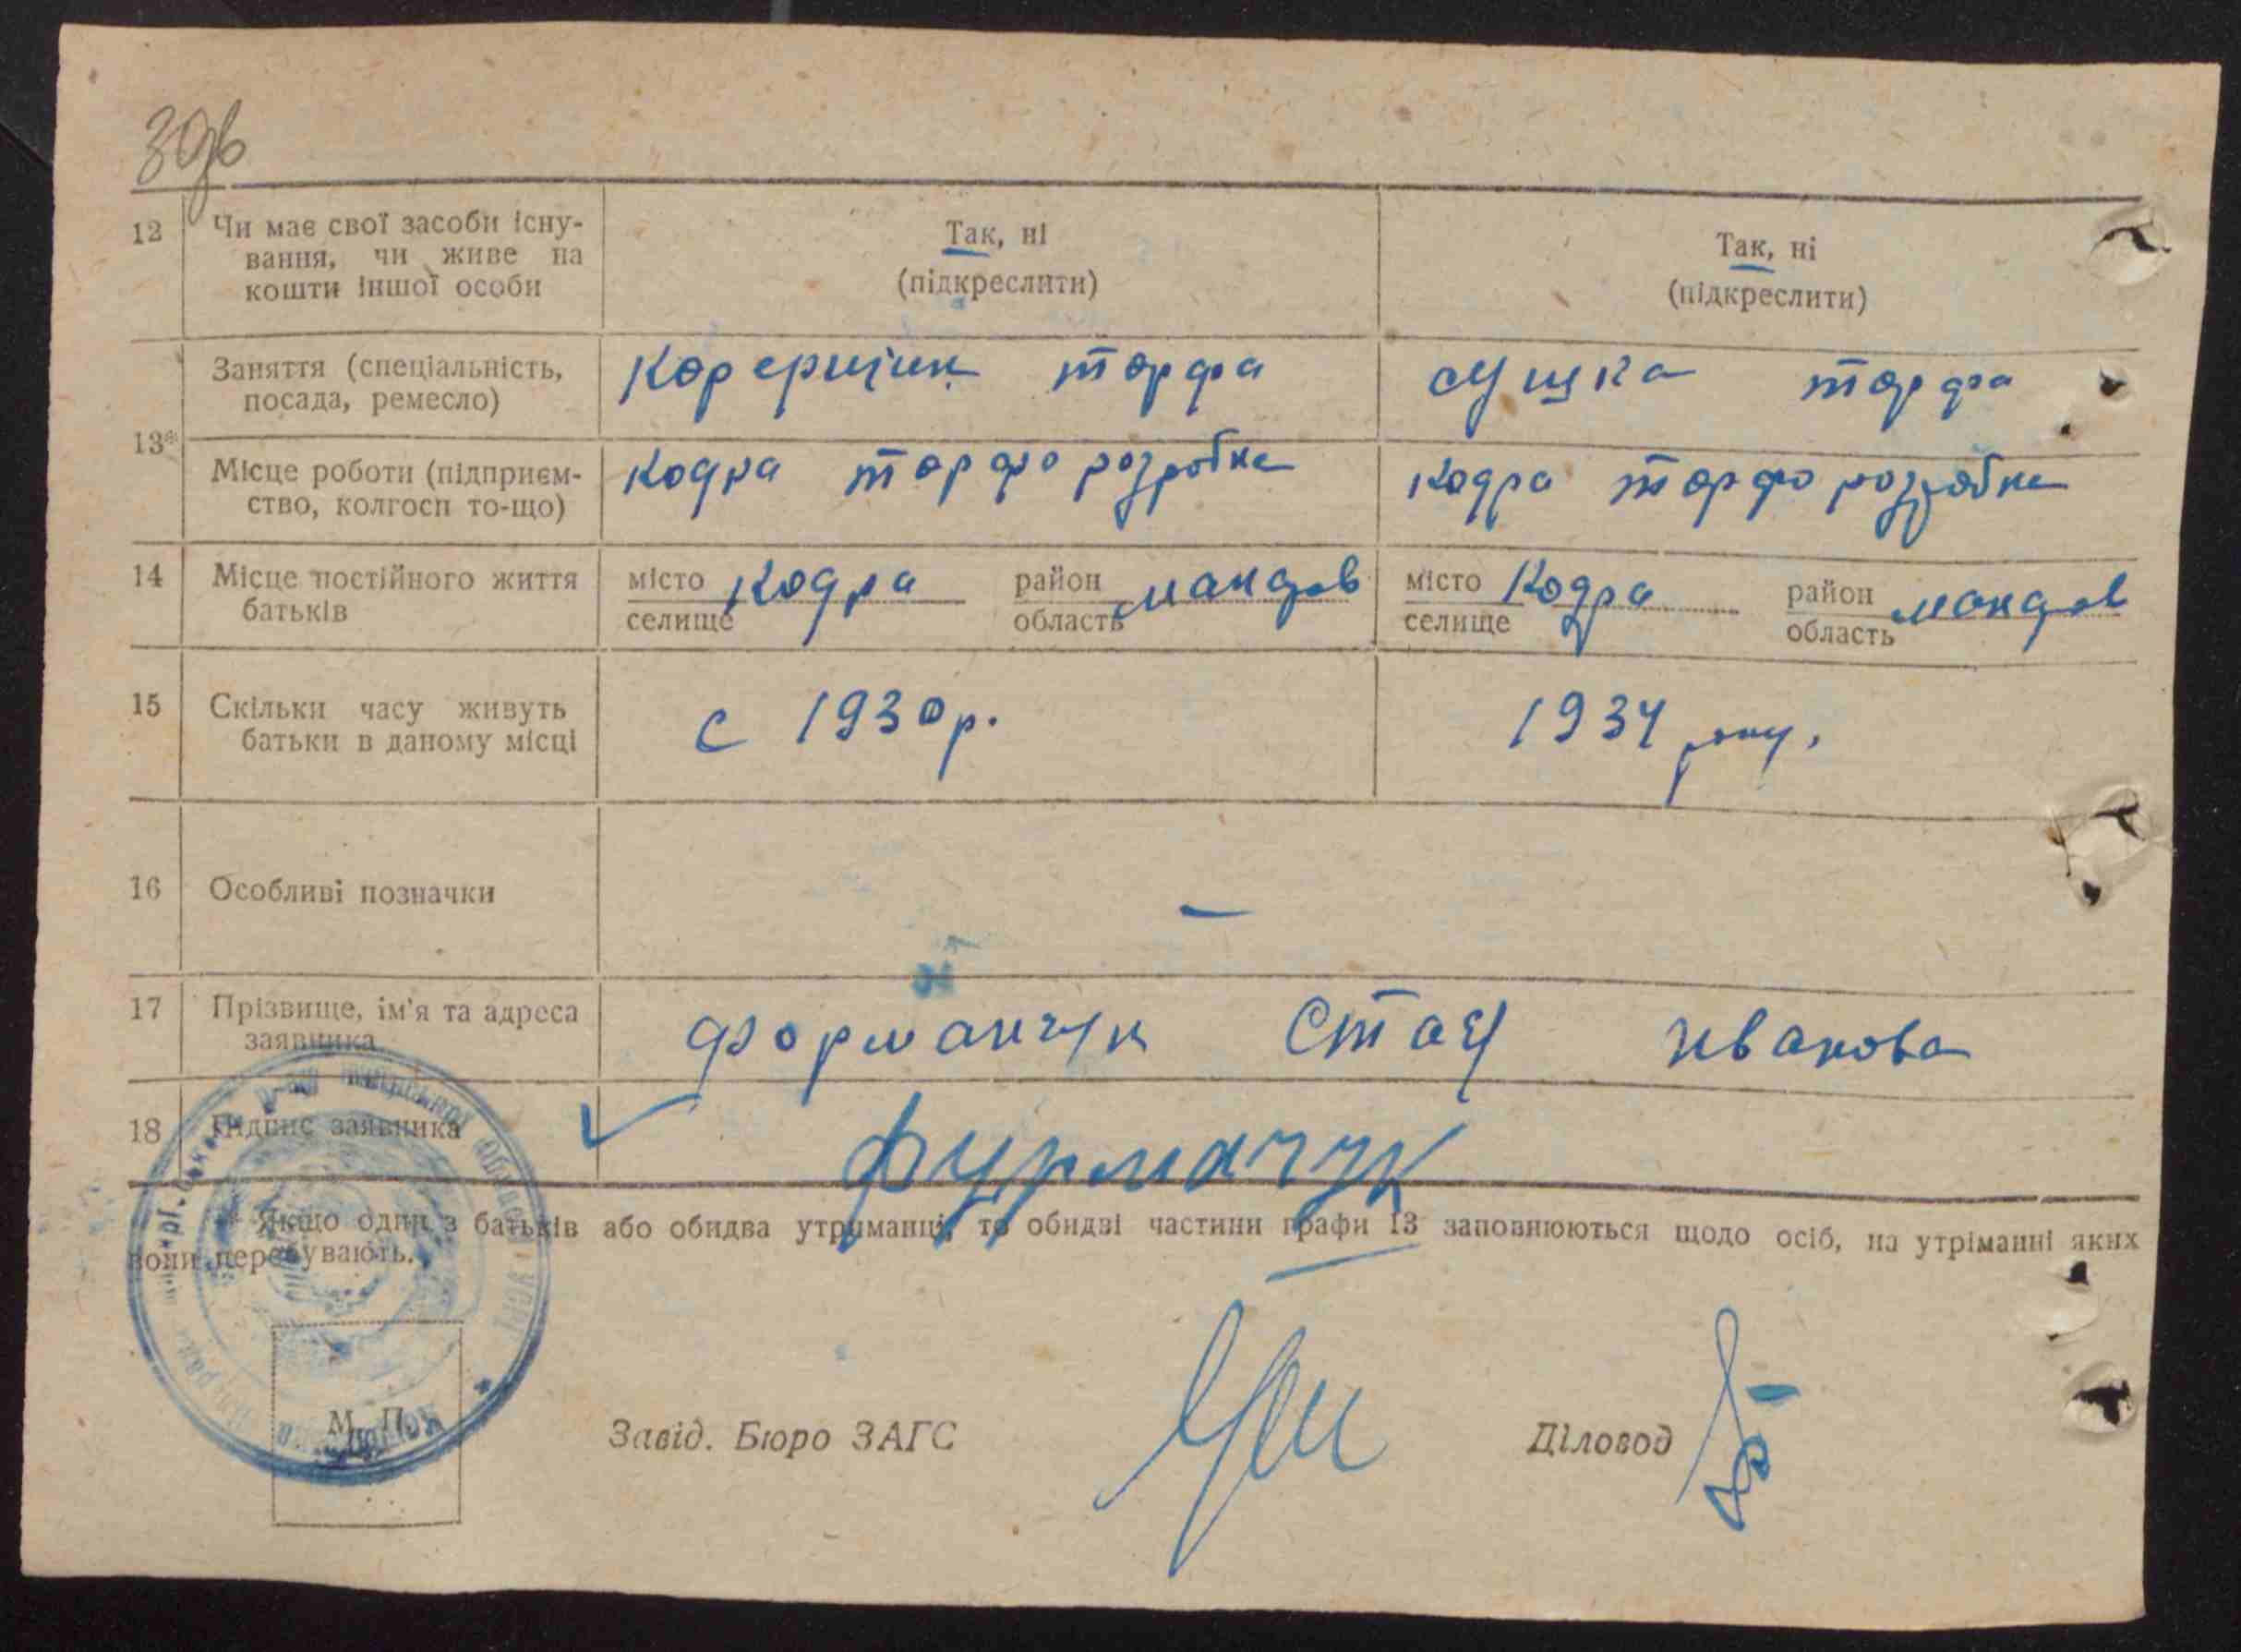 30зв
12 Чи має свої засоби існу-
вання, чи живе на
кошти іншої особи
Так, ні
(підкреслити)
Так, ні
(підкреслити)
13*
Заняття (спеціальність,
посада, ремесло)
торфа
сушка торфа
Місце роботи (підприєм-
ство, колгосп то-що)
Кодра торфо розробка
Кодра торфо розробка
14 Місце постійного життя
батьків
місто
селище
Кодра
район
область
макаров
місто
селище
Кодра
район
область
макаров
15 Скільки часу живуть
батьки в даному місці
с 1930р.
1934 року.
16 Особливі позначки
—
17 Прізвище, ім'я та адреса
заявника
Форманчук Стах Иванова
18 Підпис заявника
Фурмачук
* Якщо один з батьків або обидва утриманці, то обидві частини графи 13 заповнюються щодо осіб, на утріманні яких
вони перебувають.
М. П.
Завід. Бюро ЗАГС
Діловод